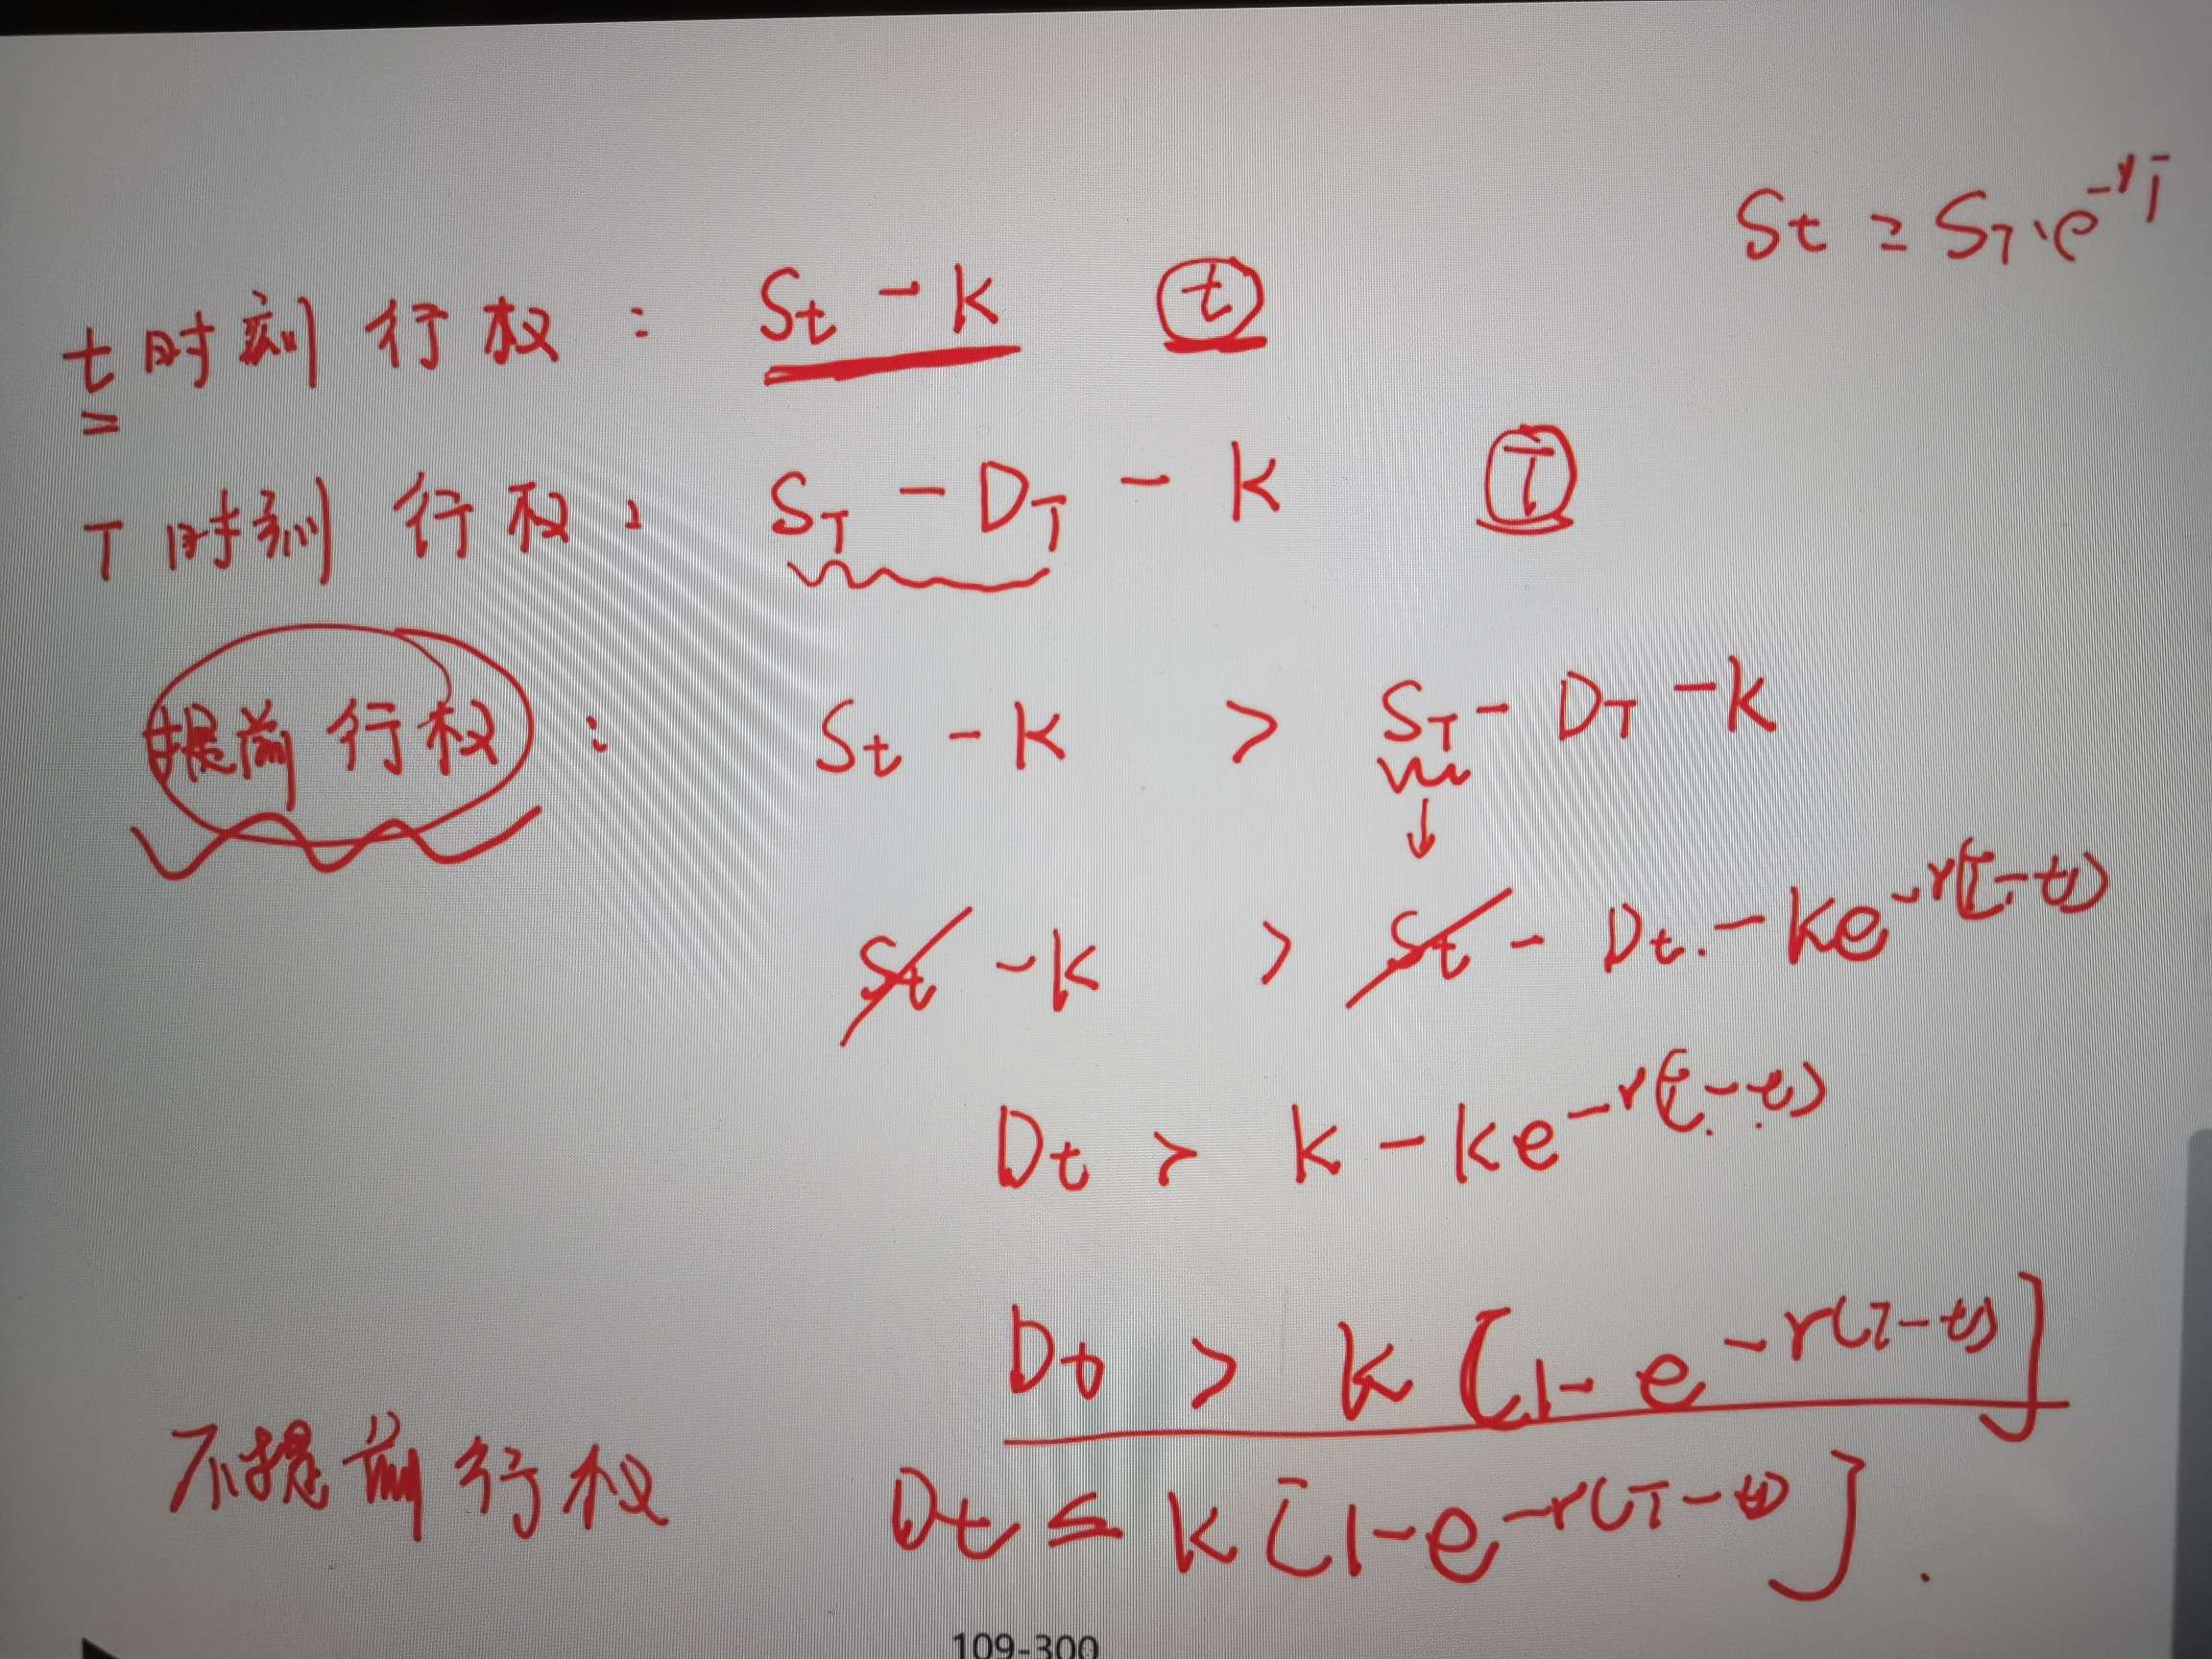 St = ST·e^-rT
t时刻行权： St - K ⓣ
T时刻行权： ST - DT - K Ⓣ
提前行权： St - K > ST - DT - K
↓
St - K > St - Dt. - Ke^-r(T-t)
Dt > K - Ke^-r(T-t)
Dt > K[1 - e^-r(T-t)]
不提前行权 Dt ≤ K[1 - e^-r(T-t)].
109-300